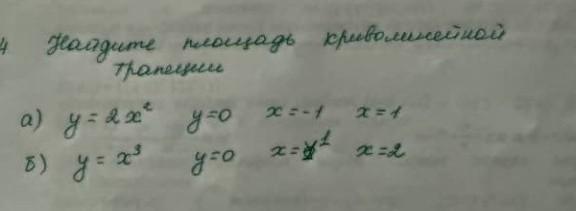 4 Найдите площадь криволинейной
трапеции
а) y = 2x² y=0 x=-1 x=1
б) y = x³ y=0 x=1 x=2